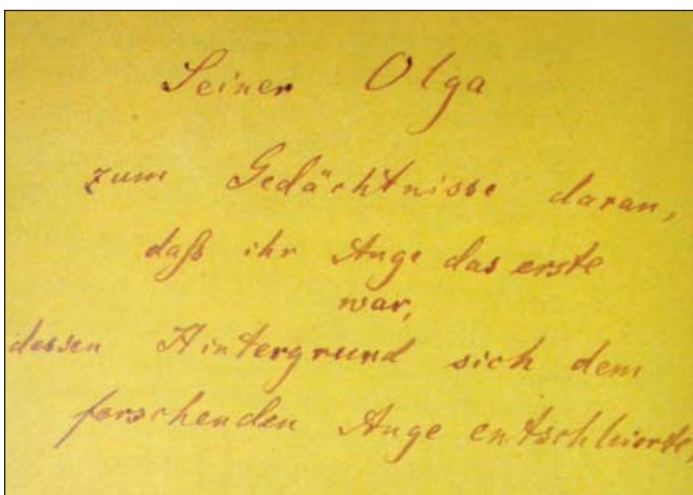 Seiner Olga
zum Gedächtnisse daran,
daß ihr Auge das erste
war,
dessen Hintergrund sich dem
forschenden Auge entschleierte,